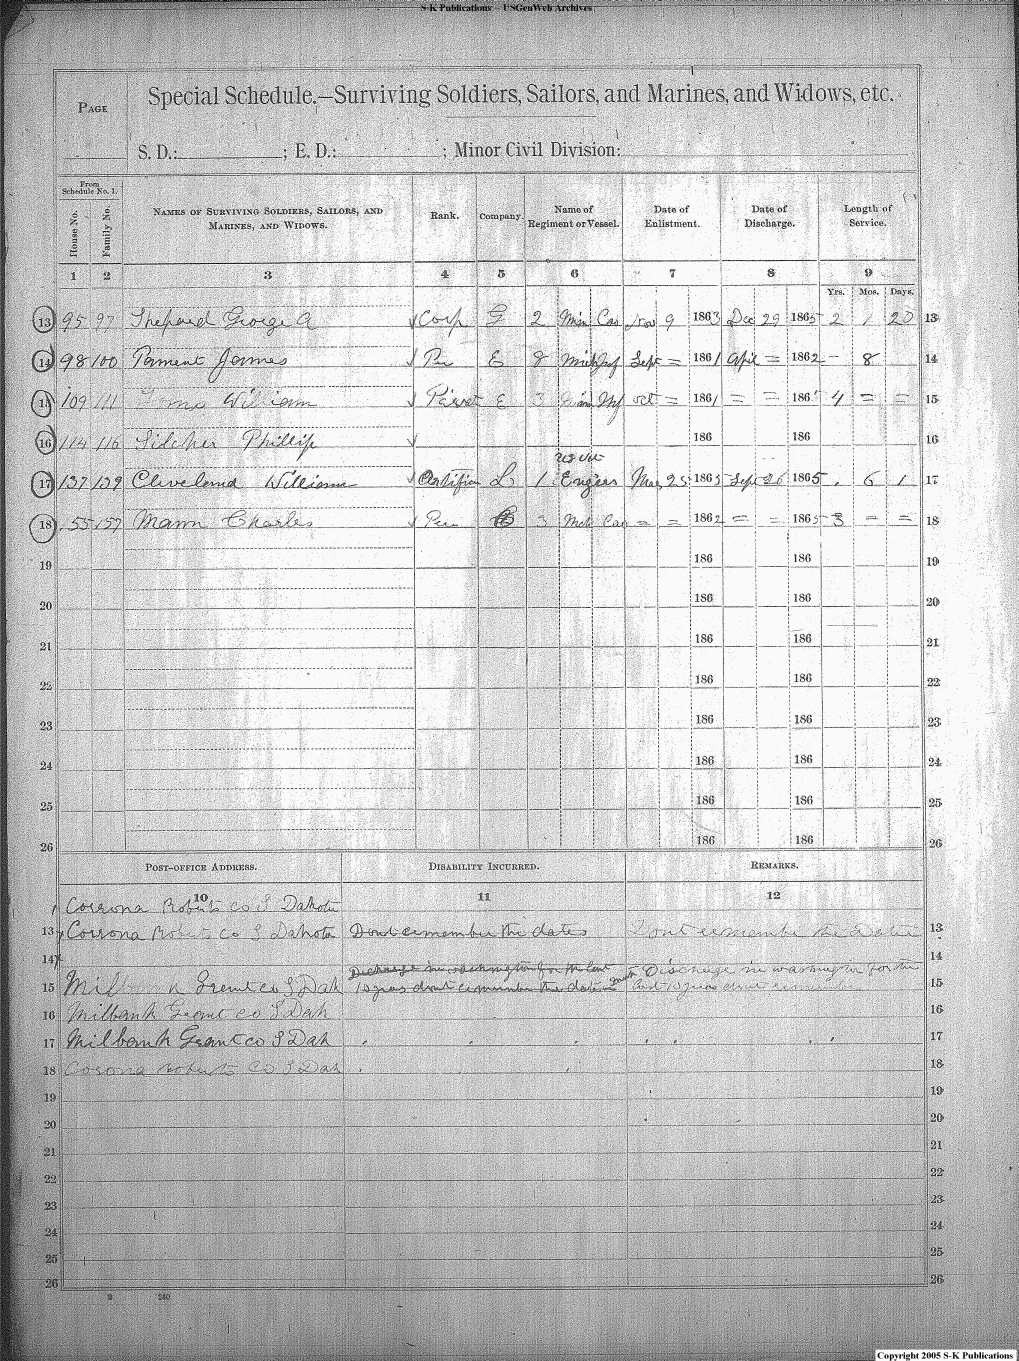 S-K Publications - USGenWeb Archives
PAGE
Special Schedule.—Surviving Soldiers, Sailors, and Marines, and Widows, etc.
S. D.: ; E. D.: ; Minor Civil Division:
From Schedule No. 1.
House No. Family No. NAMES OF SURVIVING SOLDIERS, SAILORS, AND MARINES, AND WIDOWS. Rank. Company. Name of Regiment or Vessel. Date of Enlistment. Date of Discharge. Length of Service.
1 2 3 4 5 6 7 8 9
Yrs. Mos. Days.
13 95 97 Shepard George A Corp G 2 Cav Nov 9 1863 Dec 29 1865 2 1 20 13
14 98 100 Parment James E 8 Mich Inf Sept = 1861 April = 1862 - 8 14
15 109 111 William E 3 Inf oct = 1861 = = 186 4 = = 15
16 114 116 Silcher Phillip 186 186 16
US Vol
17 137 139 Cleveland William Artificer L 1 Engees Mar 25 1865 Sept 26 1865 . 6 1 17
18 155 157 Mann Charles 3 Cav = = 1862 = = 1865 3 = = 18
19 186 186 19
20 186 186 20
21 186 186 21
22 186 186 22
23 186 186 23
24 186 186 24
25 186 186 25
26 186 186 26
POST-OFFICE ADDRESS. DISABILITY INCURRED. REMARKS.
10 11 12
Corrona Roberts co S Dakota
13 Corrona Roberts co S Dakota Dont remember the dates Dont remember the dates 13
14 14
Discharge in washington for the Discharge in washington for the
15 Milbank Grant co S Dak dont remember the date 15
16 Milbank Grant co S Dak 16
17 Milbank Grant co S Dak 17
18 Corona Roberts Co S Dak 18
19 19
20 20
21 21
22 22
23 23
24 24
25 25
26 26
2 240
Copyright 2005 S-K Publications